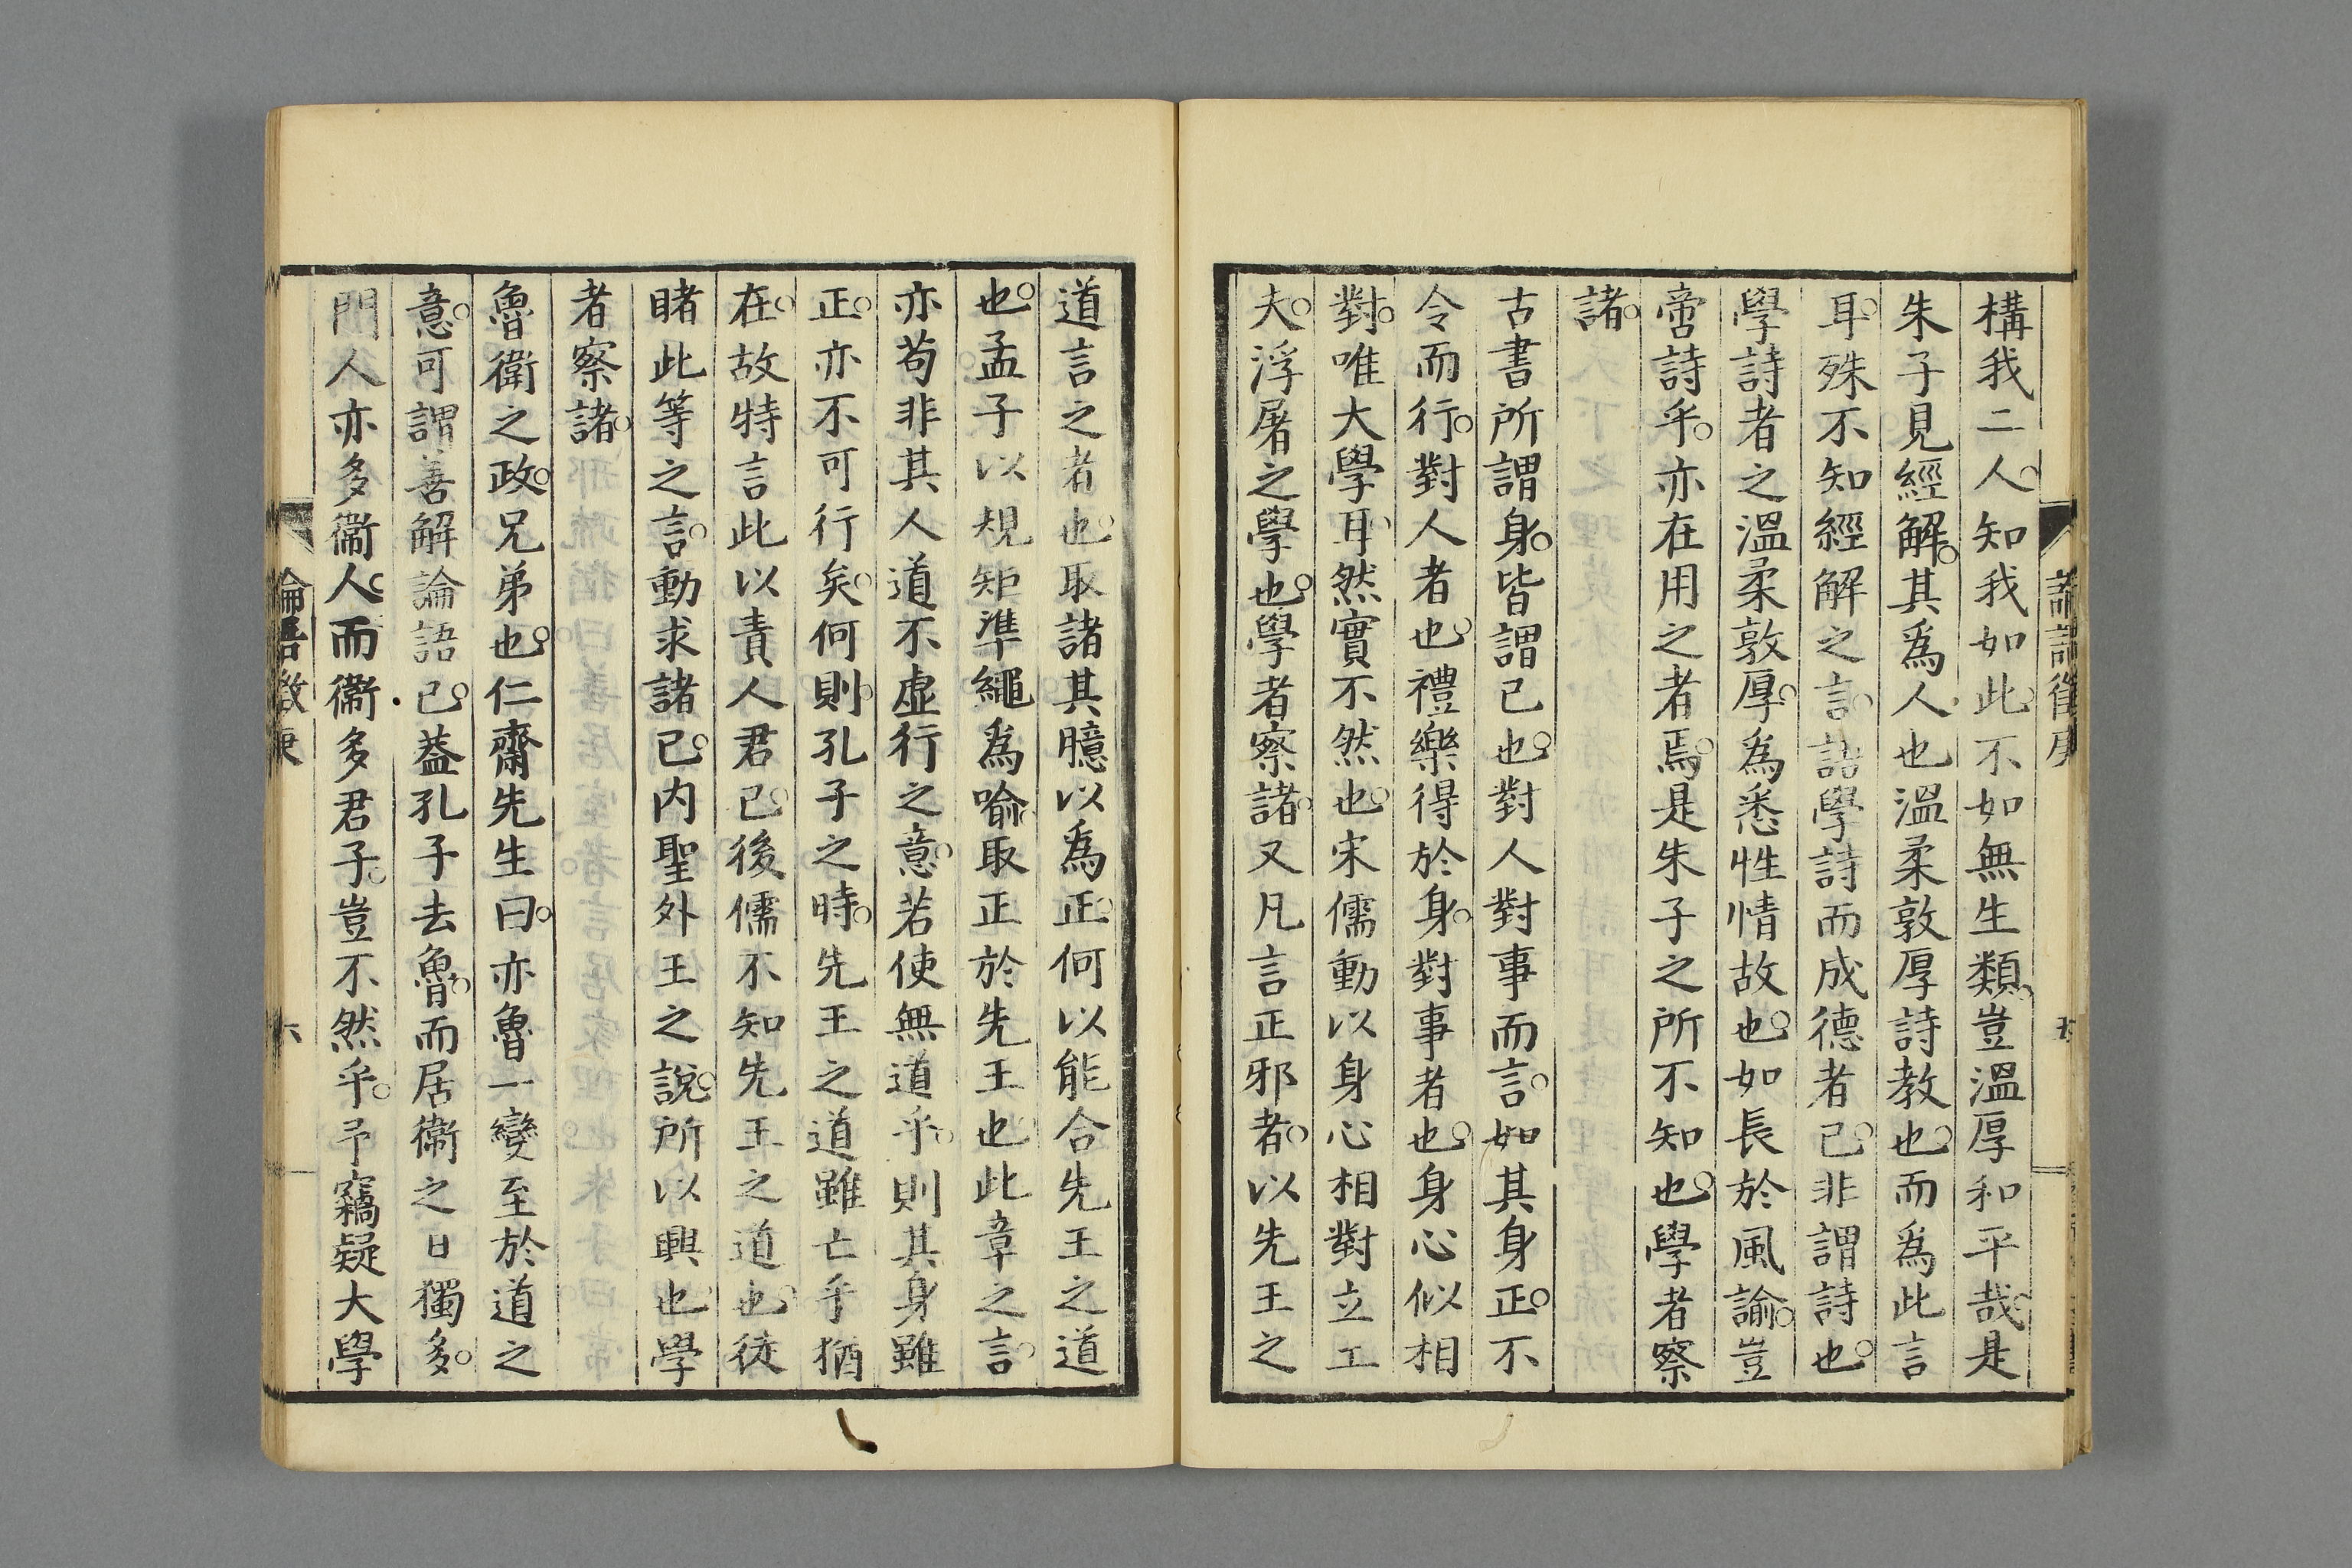 構我二人。知我如此。不如無生類。豈溫厚和平哉。是
朱子見經解。其爲人也溫柔敦厚詩教也。而爲此言
耳。殊不知經解之言。語學詩而成德者已。非謂詩也。
學詩者之溫柔敦厚。爲悉性情故也。如長於風諭。豈
啻詩乎。亦在用之者焉。是朱子之所不知也。學者察
諸。
古書所謂身。皆謂己也。對人對事而言。如其身正。不
令而行。對人者也。禮樂得於身。對事者也。身心似相
對。唯大學耳。然實不然也。宋儒動以身心相對立工
夫。浮屠之學也。學者察諸。又凡言正邪者。以先王之
道言之者也。取諸其臆以爲正。何以能合先王之道
也。孟子以規矩準繩爲喩。取正於先王也。此章之言。
亦苟非其人道不虛行之意。若使無道乎。則其身雖
正。亦不可行矣。何則。孔子之時。先王之道雖亡乎猶
在。故特言此以責人君已。後儒不知先王之道也。徒
睹此等之言。動求諸己。內聖外王之說。所以興也。學
者察諸。
魯衞之政。兄弟也。仁齋先生曰。亦魯一變至於道之
意。可謂善解論語已。蓋孔子去魯。而居衞之日獨多。
門人亦多衞人。而衞多君子。豈不然乎。予竊疑大學
六